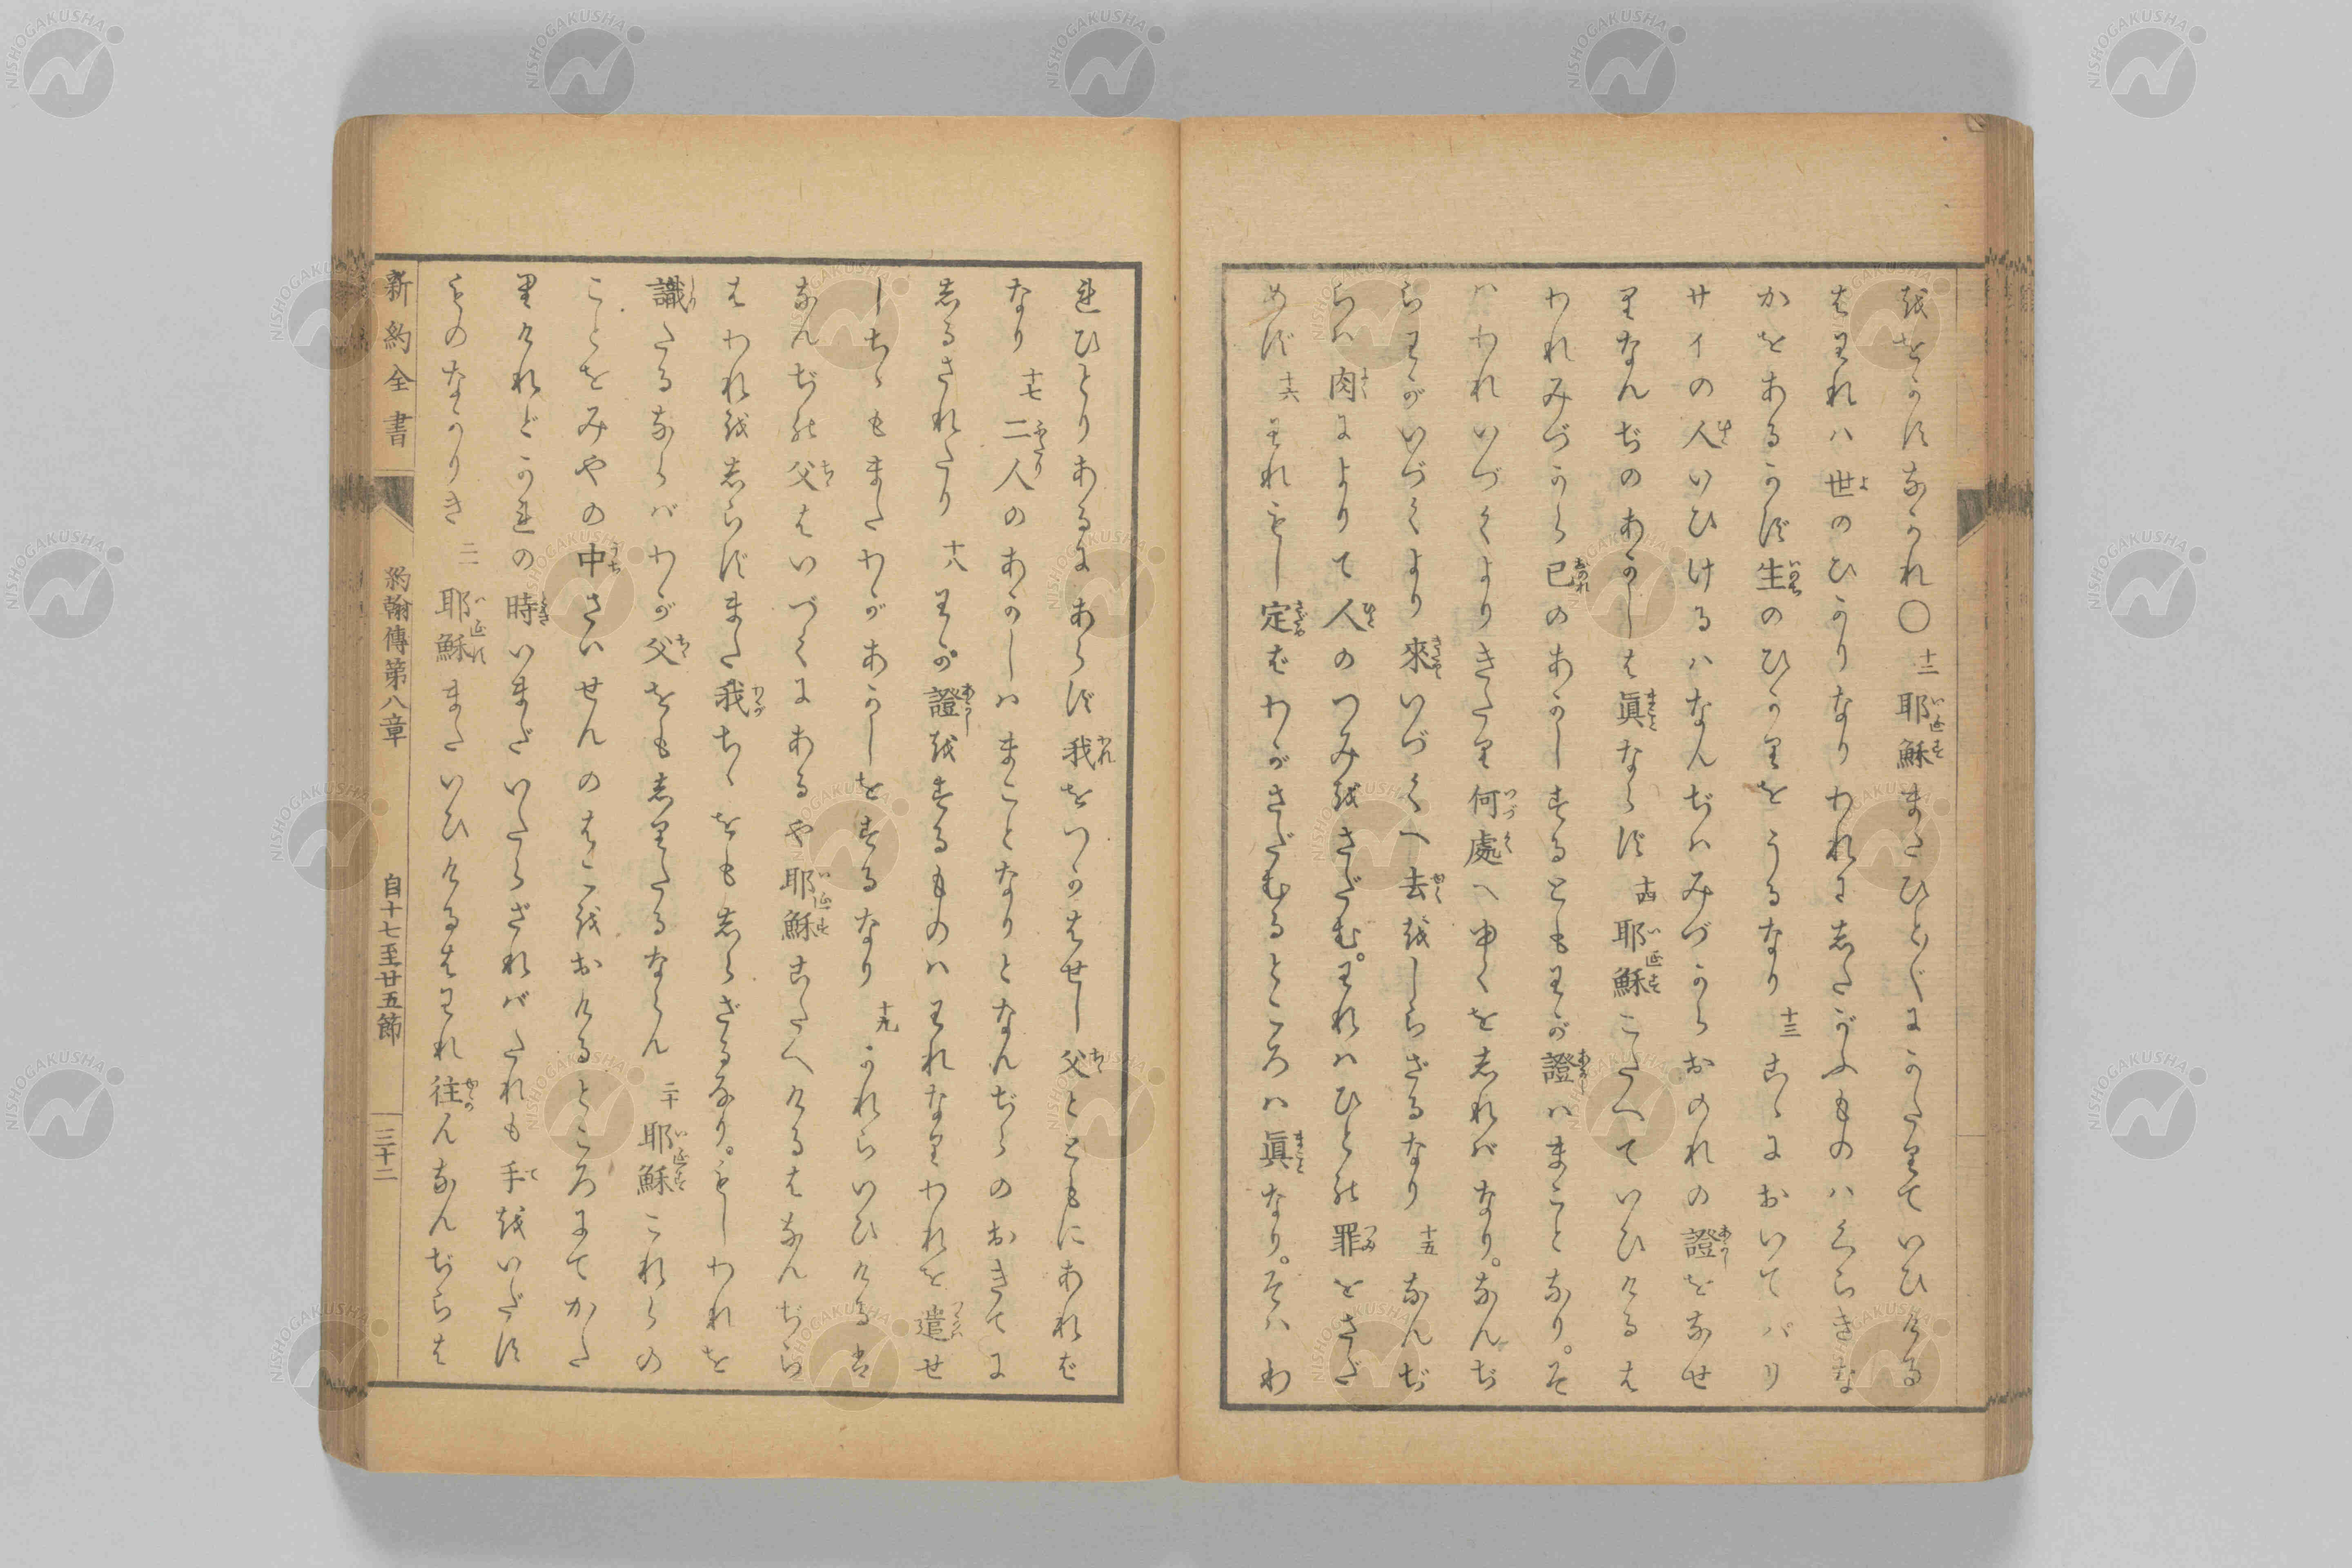 をとかすなかれ〇十二耶穌またひとびとにかたりていひける
はわれハ世のひかりなりわれにしたがふものハくらきな
かをあるかず生のひかりをうるなり十三こゝにおいてパリ
サイの人いひけるハなんぢハみづからおのれの證をなせ
りなんぢのあかしは眞ならず十四耶穌こたへていひけるは
われみづから己のあかしするともわが證ハまことなり。そ
ハわれいづくよりきたり何處へゆくを志れバなり。なんぢ
らわがいづくより來いづくへ去をしらざるなり十五なんぢ
らハ肉によりて人のつみをさだむ。われハひとの罪をさだ
めず十六われもし定ばわがさだむるところハ眞なり。そハわ
れひとりあるにあらず我をつかはせし父とともにあれば
なり十七二人のあかしハまことなりとなんぢらのおきてに
志るされたり十八わが證をするものハわれなりわれを遣せ
しちゝもまたわがあかしをするなり十九かれらいひけるは
なんぢの父はいづくにあるや耶穌こたへけるはなんぢら
はわれを志らずまた我ちゝをも志らざるなり。もしわれを
識たるならバわが父をも志りたるならん二十耶穌これらの
ことをみやの中さいせんのはこをおけるところにてかた
りけれどかれの時いまだいたらざれバたれも手をいだす
ものなかりき二一耶穌またいひけるはわれ往んなんぢらは
新約全書 約翰傳第八章 自十七至廿五節 三十二